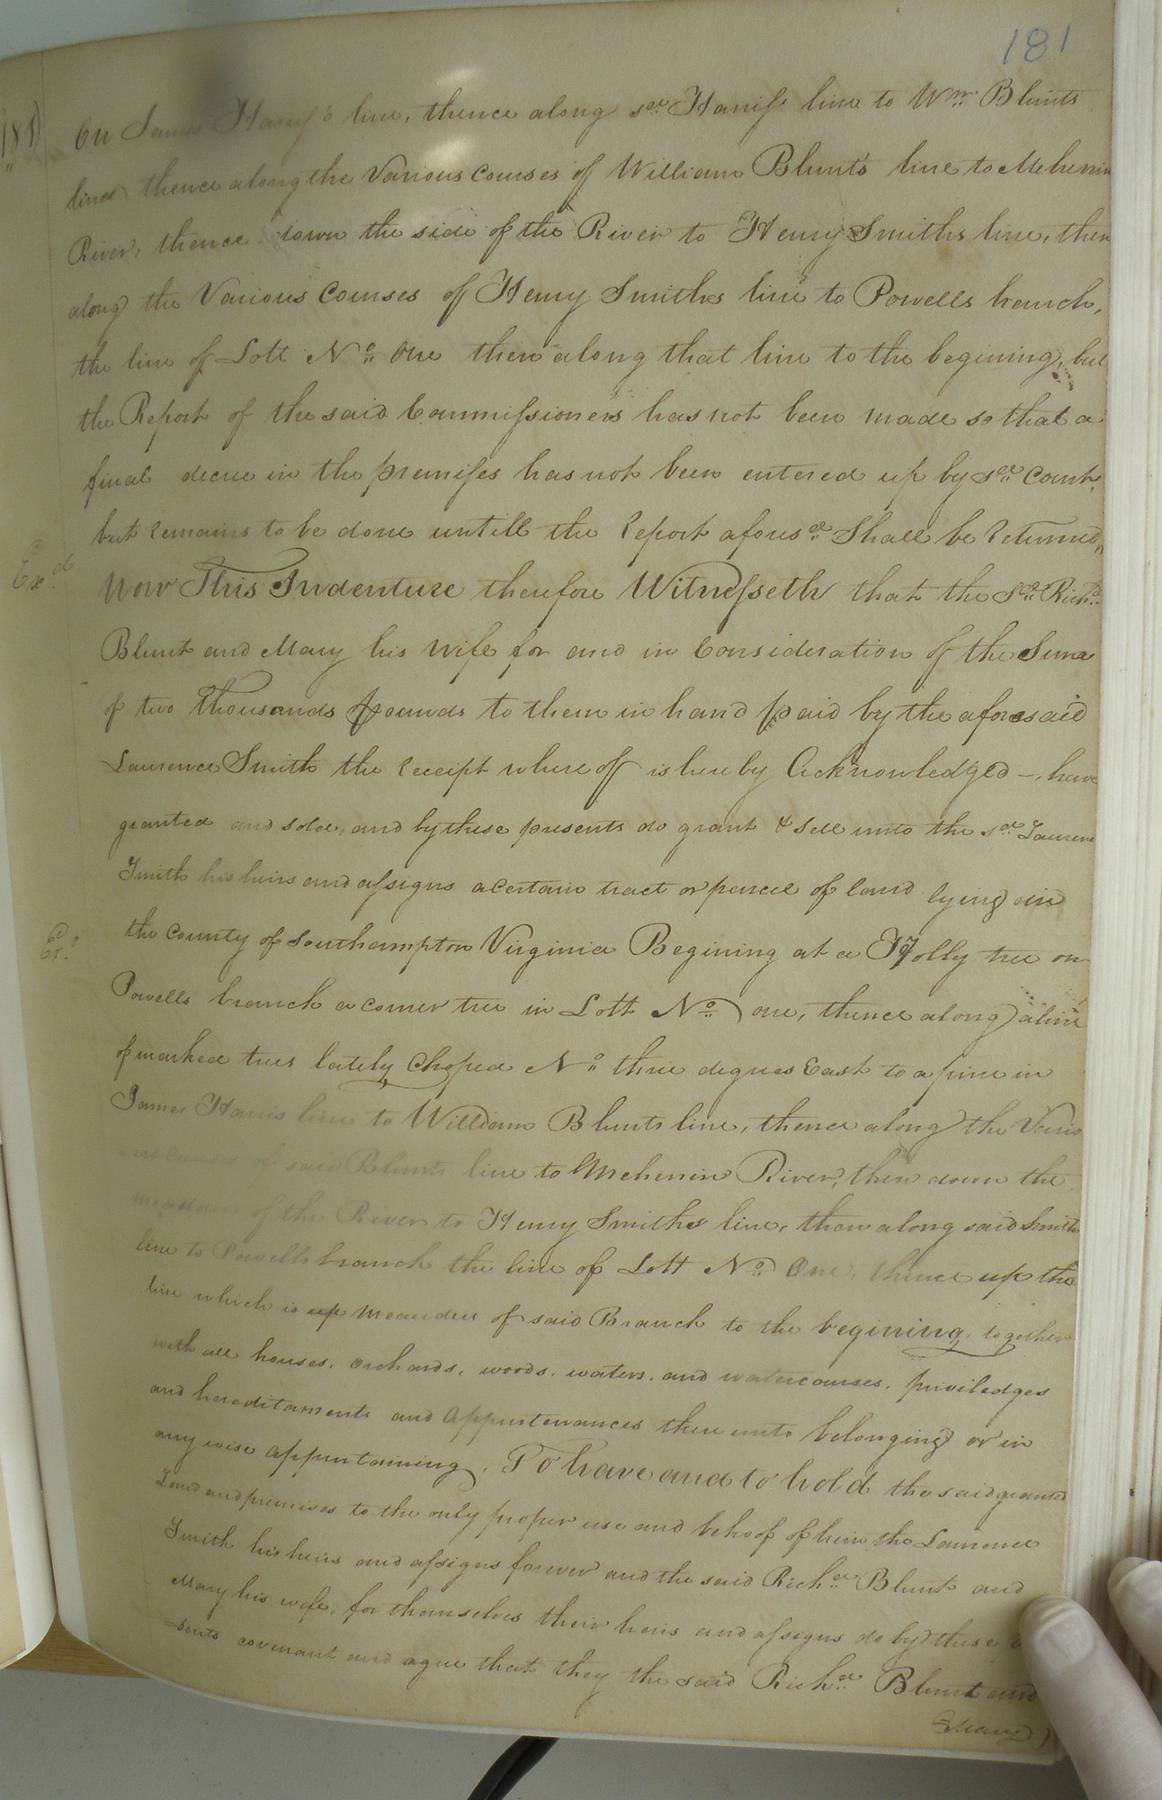 181
181)
On James Harriss's line, thence along sd. Harriss line to Wm. Blunts
lines thence along the Various courses of William Blunts line to Meherrin
River, thence down the side of the River to Henry Smiths line, then
along the Various Courses of Henry Smiths line to Powells branch,
the line of Lott No. One then along that line to the begining, but
the Report of the said Commissioners has not been made so that a
final decree in the premises has not been entered up by sd. Court,
but remains to be done untill the report afores'd. Shall be returned,
Exd.
Now This Indenture therefore Witnesseth that the sd. Richd.
Blunt and Mary his wife for and in Consideration of the Sum
of two thousands pounds to them in hand paid by the aforesaid
Laurence Smith the receipt where off is hereby Acknowledged —, have
granted and sold, and by these presents do grant & sell unto the sd. Laurence
Smith his heirs and assigns a certain tract or parcel of land lying in
the county of Southampton Virginia Begining at a Holly tree on
Powells branch a corner tree in Lott No. one, thence along a line
of marked trees lately choped No. three degrees East to a pine in
James Harris line to William Blunts line, thence along the Vario
us courses of said Blunts line to Meherrin River, then down the
meanders of the River to Henry Smiths line, then along said Smiths
line to Powells branch the line of Lott No. One, thence up the
line which is up meander of said Branch to the begining, together
with all houses, orchards, woods, waters, and watercourses, priviledges
and hereditaments and Appurtenances there unto belonging or in
any wise appurtaining. To have and to hold the said granted
Land and premises to the only proper use and behoof of him the Laurence
Smith his heirs and assigns forever and the said Richd. Blunt and
Mary his wife, for themselves their heirs and assigns do by these
sents covenant and agree that they the said Richd. Blunt and
Mary